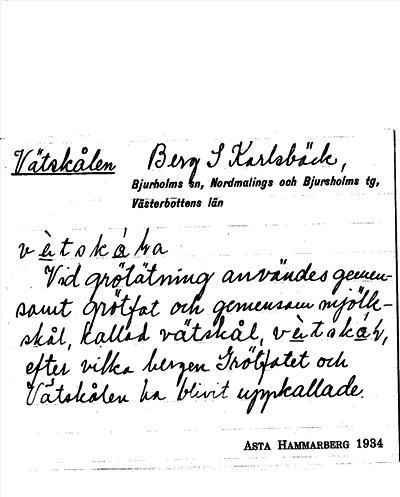 Vätskålen Berg S Karlsbäck,
Bjurholms sn, Nordmalings och Bjursholms tg,
Västerbottens län
Vid grötätning användes gemen-
samt grötfat och gemensam mjölk-
skål, kallad vätskål,
efter vilka bergen Grötfatet och
Vätskålen ha blivit uppkallade.
ASTA HAMMARBERG 1934